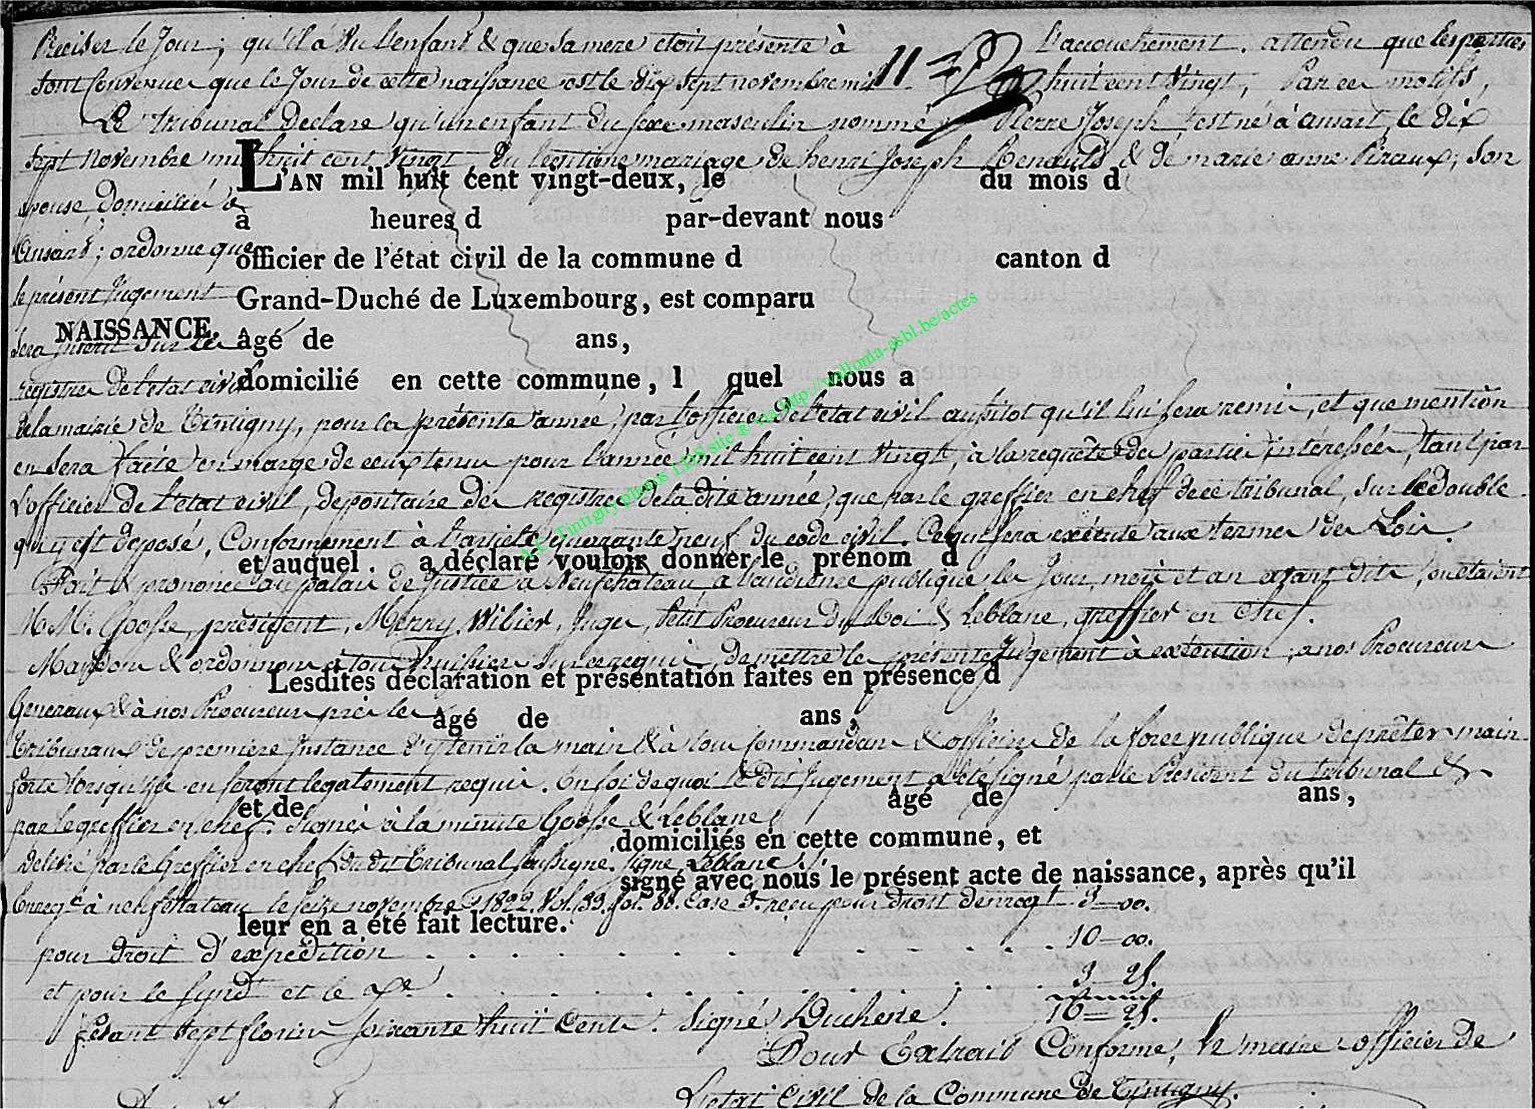 Préciser le Jour; qu'il a vu l'enfant & que sa mere etoit présente à l'acouchement. attendu que les parties
sont Convenues que le Jour de cette naissance est le dix sept novembre mil huit cent vingt, Par ces motifs,
11
Le tribunal declare qu'un enfant du sexe masculin nommé Pierre Joseph, est né à ansart, le dix
sept novembre mil huit cent vingt, du legitime mariage de henri Joseph Renauld & de marie anne Piraux, son
L'AN mil huit cent vingt-deux, le du mois d
epouse, domiciliés à
à heures d par-devant nous
Ansart; ordonne que
officier de l'état civil de la commune d canton d
le présent Jugement
Grand-Duché de Luxembourg, est comparu
NAISSANCE.
sera inscrit sur les
âgé de ans,
registres de l'etat civil
domicilié en cette commune, l quel nous a
de la mairie de Tintigny, pour la présente année, par l'officier de l'etat civil aussitot qu'il lui sera remis, et que mention
en sera faite en marge de ceux tenus pour l'année mil huit cent vingt, à la requête des parties intéressées, tant par
L'officier de l'etat civil, depositaire des registres de la dite année, que par le greffier en chef de ce tribunal, sur le double
qui y est deposé, Conformement à l'article quarante neuf du code civil. Ce qui sera exécuté aux termes des Lois.
et auquel a déclaré vouloir donner le prénom d
Fait & prononcé au palais de Justice à Neufchateau, à l'audience publique, les Jour, mois et an avant dits, où étaient
M.M. Goosse, président, Merny, Wilier, Juges, Petit Procureur du Roi & Leblanc, greffier en chef.
Mandons & ordonnons à tous huissiers sur ce requis, de mettre le présent Jugement à exécution, a nos Procureurs
Lesdites déclaration et présentation faites en présence d
Generaux & à nos Procureurs près les
âgé de ans,
Tribunaux de première Instance d'y tenir la main & à tous Commandans & officiers de la force publique de prêter main-
forte lorsqu'ils en seront legalement requis. En foi de quoi le dit Jugement a été signé par le President du tribunal &
et de âgé de ans,
par le greffier en chef. Signés à la minute Goosse & Leblanc
domiciliés en cette commune, et
Delivré par le Greffier en chef du dit Tribunal soussigné. signé Leblanc.
signé avec nous le présent acte de naissance, après qu'il
Enregt. à neufchateau le seize novembre 1822. Vol. 39. fol. 88. Case 3. reçu pour droit d'enregt. 3—00.
leur en a été fait lecture.
pour droit d'expédition . . . . . . . . . 10—00.
et pour le synd. et le . . . . . . . . . 3 25.
16—25.
fesant sept florins soixante huit Cents. Signé, Duchesne.
Pour Extrait Conforme, le maire officier de
L'etat Civil de la Commune de Tintigny.
A.E. Tintigny photos LDS site & via http://wallonia-asbl.be/actes